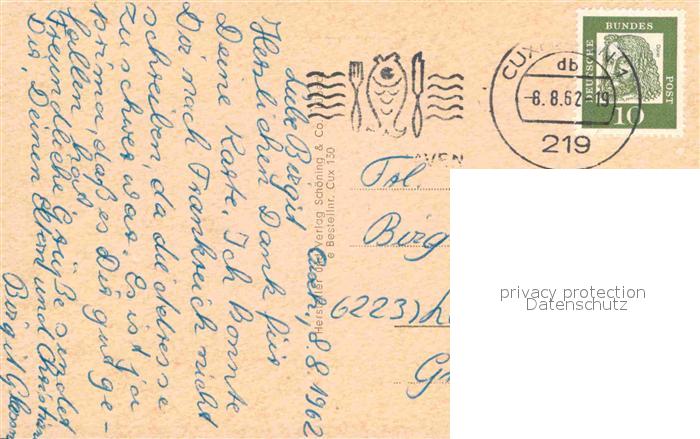 Cuxh, 8.8.1962
Liebe Birgit
Herzlichen Dank für
Deine Karte. Ich konnte
Dir nach Frankreich nicht
schreiben, da die Adresse
zu schwer war. Es ist ja
prima, daß es Dir gut ge-
fallen hat.
Freundliche Grüße sendet
Dir, Deinen und Christian
Birgit
Hersteller und Verlag Schöning & Co.
Bestellnr. Cux 130
CUX
db
-8.8.62-19
219
AVEN
DEUTSCHE
BUNDES
POST
Dürer
10
Frl.
Birg
6223)
privacy protection
Datenschutz